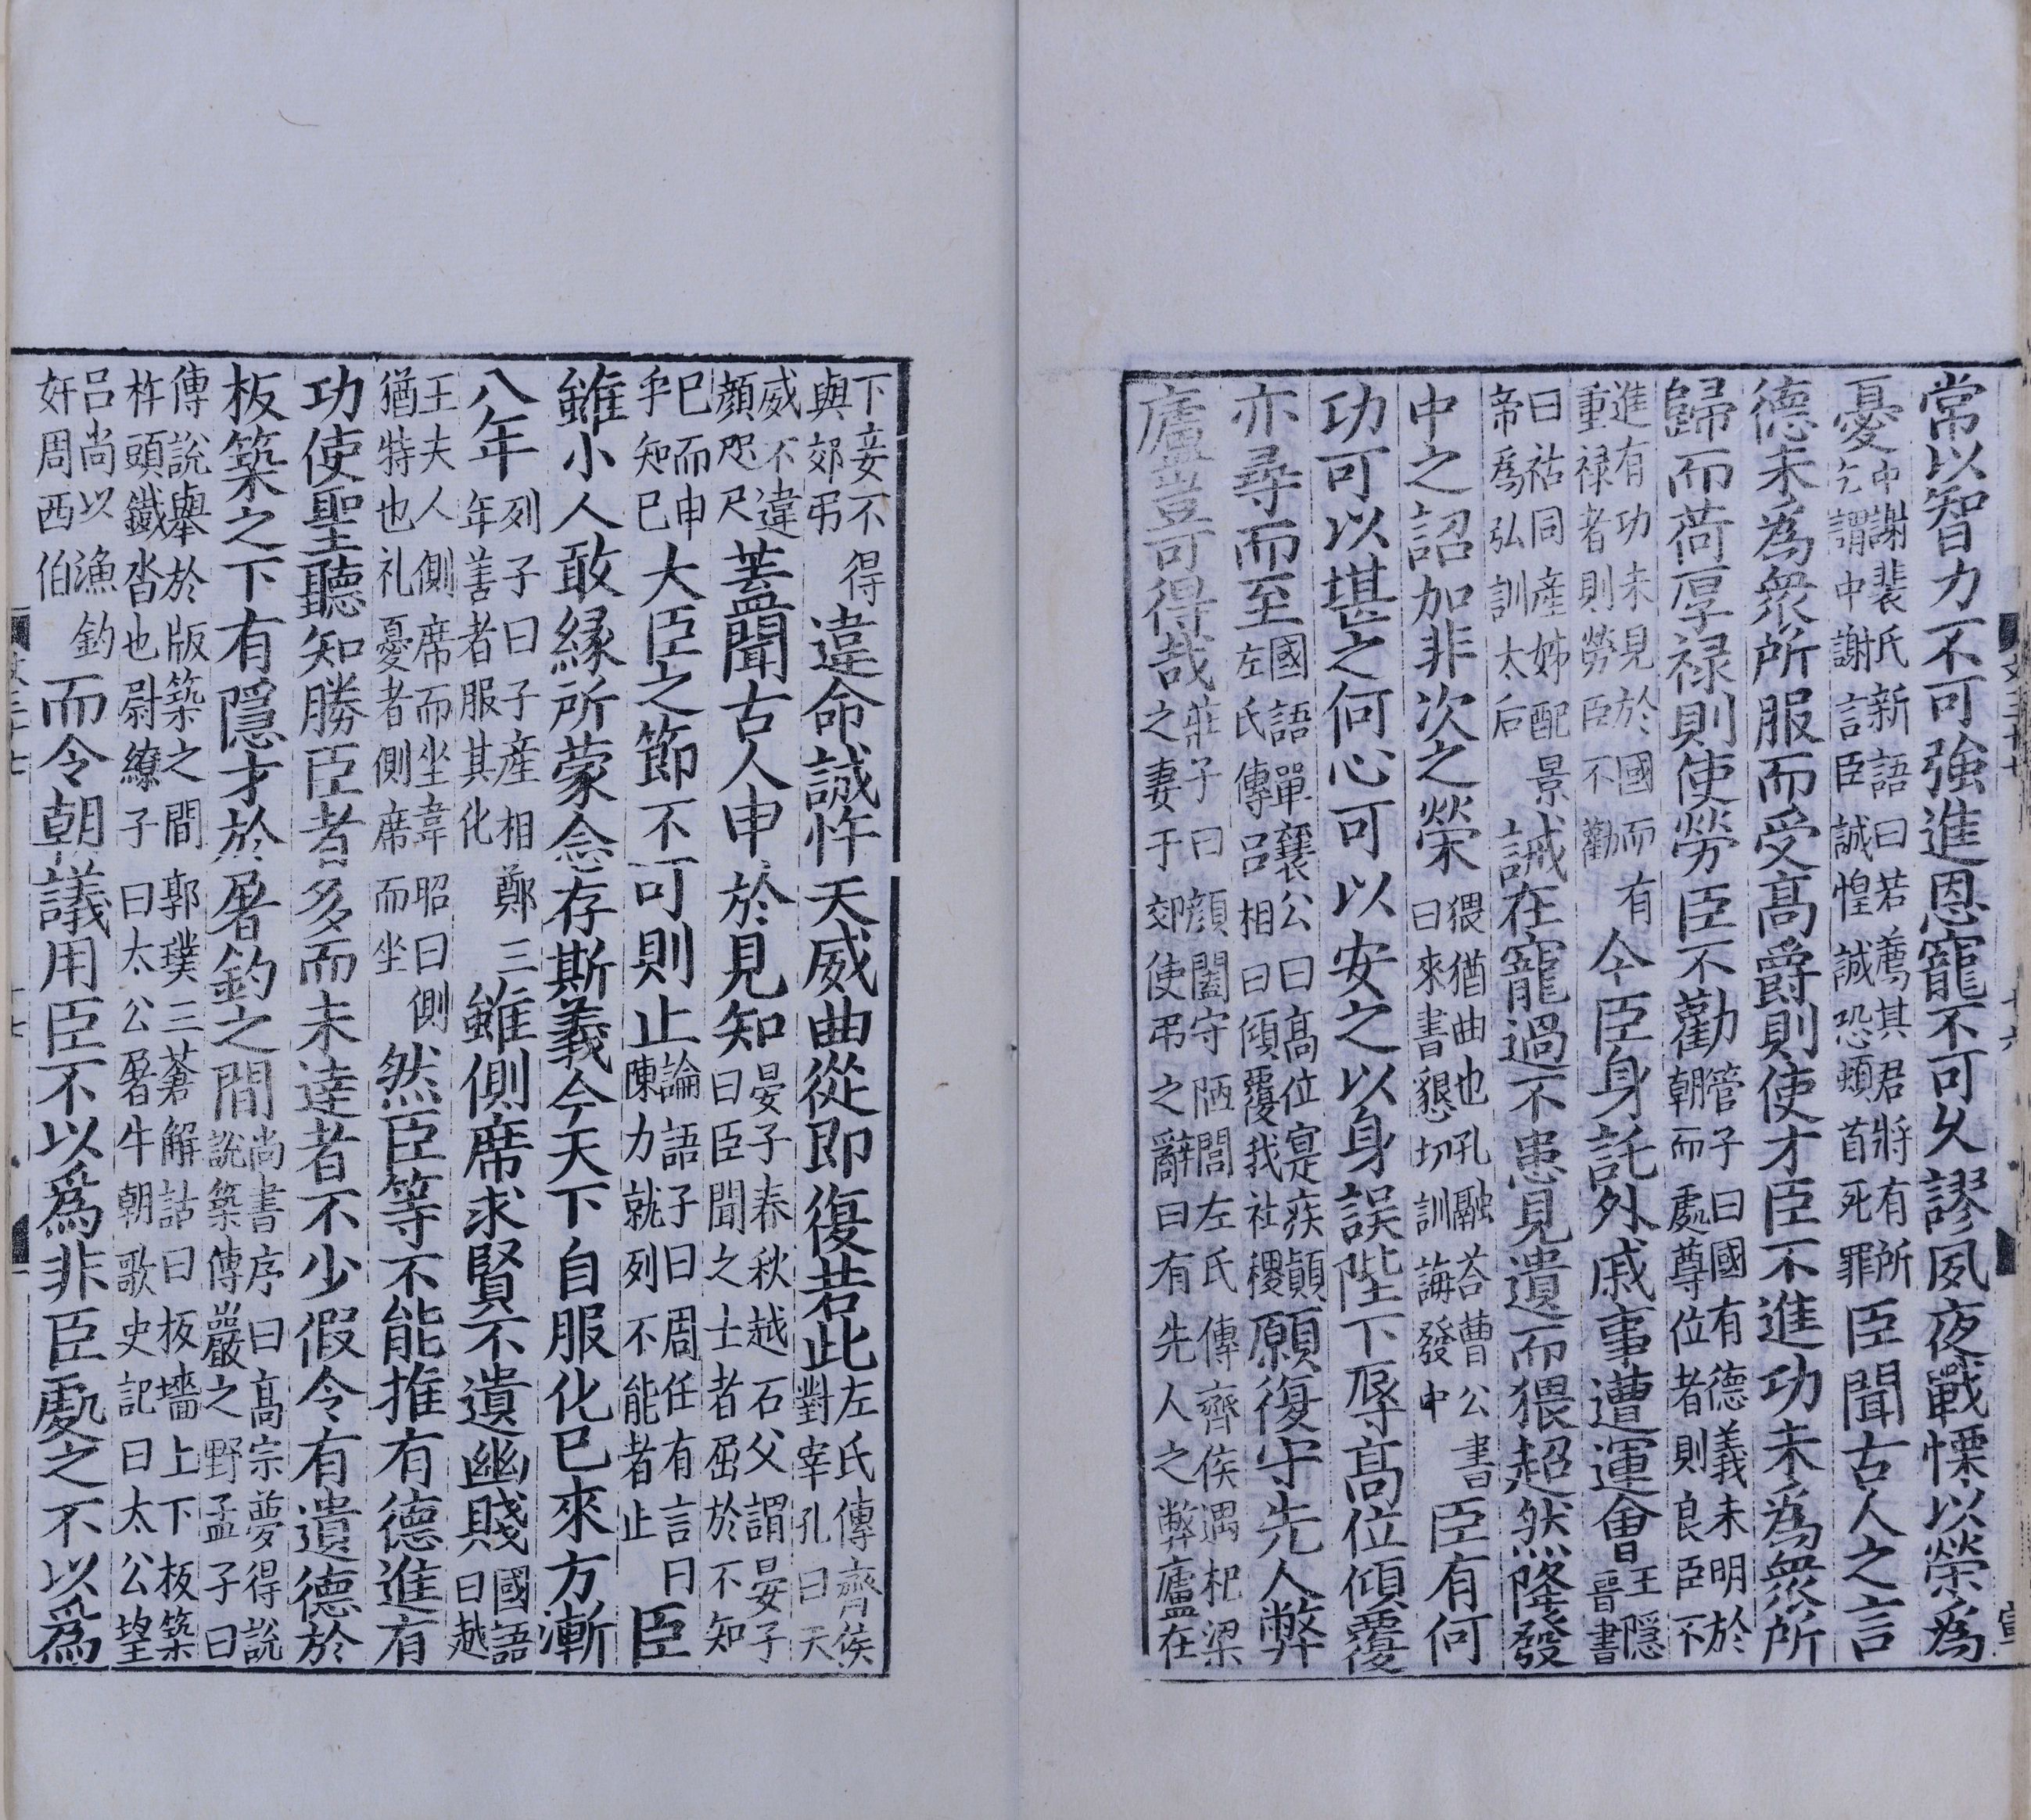 常以智力不可強進恩寵不可久謬夙夜戰慄以榮為
憂中謝裴氏新語曰若薦其君將有所乞謂中謝言臣誠惶誠恐頓首死罪臣聞古人之言
德未爲衆所服而受髙爵則使才臣不進功未爲衆所
歸而荷厚禄則使勞臣不勸管子曰國有德義未明於朝而處尊位者則良臣不
進有功未見於國而有重禄者則勞臣不勸今臣身託外戚事遭運會王隱晉書
曰祜同産姊配景帝爲弘訓太后誡在寵過不患見遺而猥超然降發
中之詔加非次之榮猥猶曲也孔融荅曹公書曰來書懇切訓誨發中臣有何
功可以堪之何心可以安之以身誤陛下辱髙位傾覆
亦尋而至國語單襄公曰髙位寔疾顛左氏傳呂相曰傾覆我社稷願復守先人弊
廬豈可得哉莊子曰顔闔守陋閭左氏傳齊侯遇杞梁之妻于郊使弔之辭曰有先人之弊廬在
文三十七
十六
下妾不得與郊弔違命誠忤天威曲從即復若此左氏傳齊侯對宰孔曰天
威不違顔咫尺蓋聞古人申於見知晏子春秋越石父謂晏子曰臣聞之士者屈於不知
巳而申乎知巳大臣之節不可則止論語子曰周任有言曰陳力就列不能者止臣
雖小人敢緣所蒙念存斯義今天下自服化已來方漸
八年列子曰子産相鄭三年善者服其化雖側席求賢不遺幽賤國語曰越
王夫人側席而坐韋昭曰側猶特也礼憂者側席而坐然臣等不能推有德進有
功使聖聽知勝臣者多而未達者不少假令有遺德於
板築之下有隱才於屠釣之間尚書序曰髙宗夢得說說築傅巖之野孟子曰
傳說舉於版築之間郭璞三蒼解詁曰板墻上下板築杵頭鐵沓也尉繚子曰太公屠牛朝歌史記曰太公望
呂尚以漁釣奸周西伯而令朝議用臣不以爲非臣處之不以爲